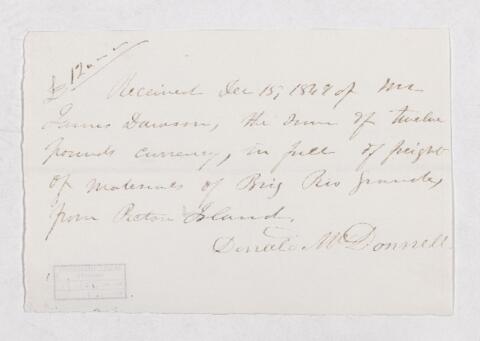 £ 12
Received Dec 15, 1848 of Mr
James Dawson, the sum of twelve
pounds currency, in full of freight
of materials of Brig Rio Grande,
from Pictou Island.
Donald McDonnell